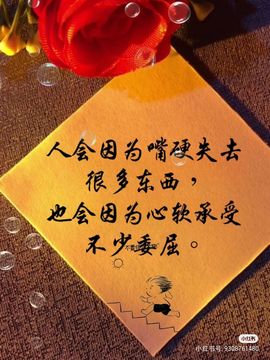 人会因为嘴硬失去
很多东西，
也会因为心软承受
不少委屈。
小红书
小红书号: 9308761480